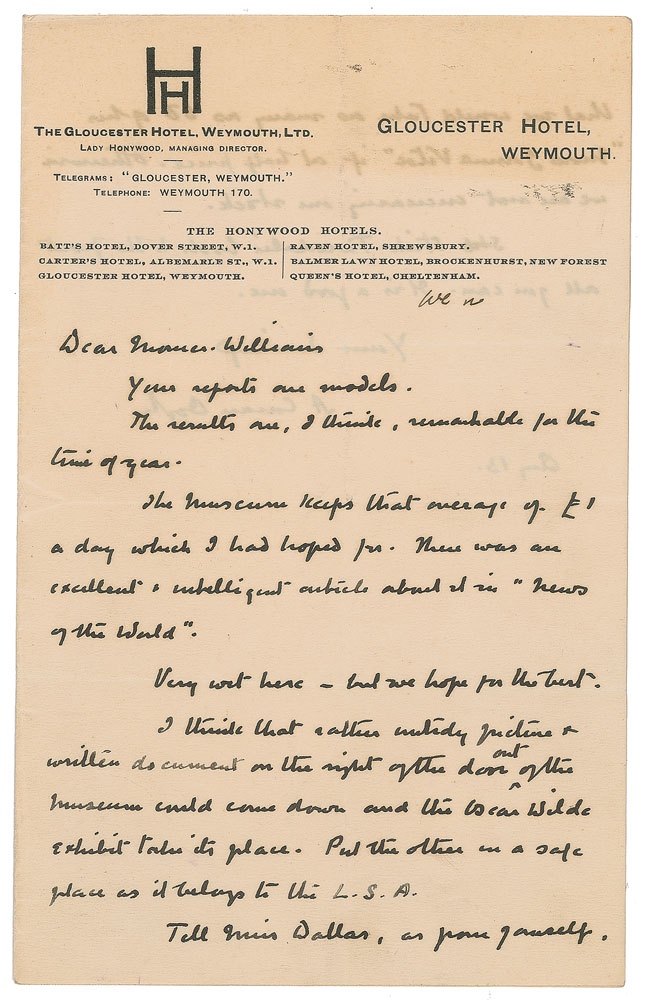 HH
THE GLOUCESTER HOTEL, WEYMOUTH, LTD.
LADY HONYWOOD, MANAGING DIRECTOR.
TELEGRAMS: "GLOUCESTER, WEYMOUTH."
TELEPHONE: WEYMOUTH 170.
GLOUCESTER HOTEL,
WEYMOUTH.
THE HONYWOOD HOTELS.
BATT'S HOTEL, DOVER STREET, W.1.
CARTER'S HOTEL, ALBEMARLE ST., W.1.
GLOUCESTER HOTEL, WEYMOUTH.
RAVEN HOTEL, SHREWSBURY.
BALMER LAWN HOTEL, BROCKENHURST, NEW FOREST
QUEEN'S HOTEL, CHELTENHAM.
Dear Williams
Your reports are models.
The results are, I think, remarkable for the
time of year.
The Museum keeps that average of £1
a day which I had hoped for. There was an
excellent & intelligent article about it in "News
of the World".
Very wet here – but we hope for the best.
I think that rather untidy picture &
written document on the right of the door out of the
Museum could come down and the Oscar Wilde
exhibit take its place. Put the other in a safe
place as it belongs to the L.S.A.
Tell Miss Dallas, as from yourself,